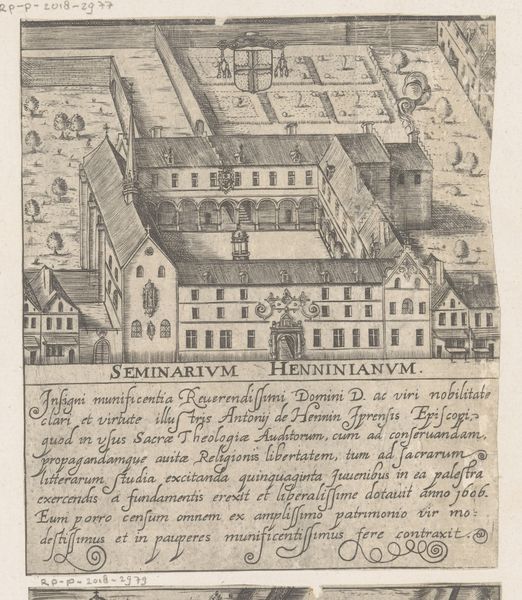 RP-P-2018-2977
SEMINARIVM HENNINIANVM.
Insigni munificentia Reuerendissimi Domini D. ac viri nobilitate
clari et virtute illustris Antonij de Hennin Iprensis Episcopi,
quod in vsus Sacræ Theologiæ Auditorum, cum ad conseruandam,
propagandamque auitæ Religionis libertatem, tum ad sacrarum
litterarum studia excitanda quinquaginta Iuuenibus in ea palestra
exercendis a fundamentis erexit et liberalissime dotauit anno 1606.
Eum porro censum omnem ex amplissimo patrimonio vir mo-
destissimus et in pauperes munificentissimus fere contraxit.
RP-P-2018-2979